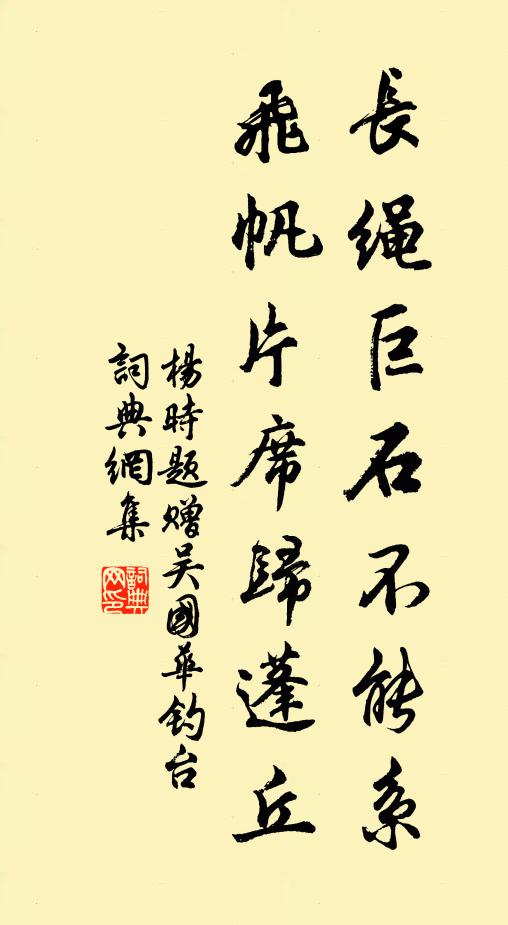 長绳巨石不能系
飛帆片席歸蓬丘
楊時题赠吴國華钓台
詞典網集
詞典網印